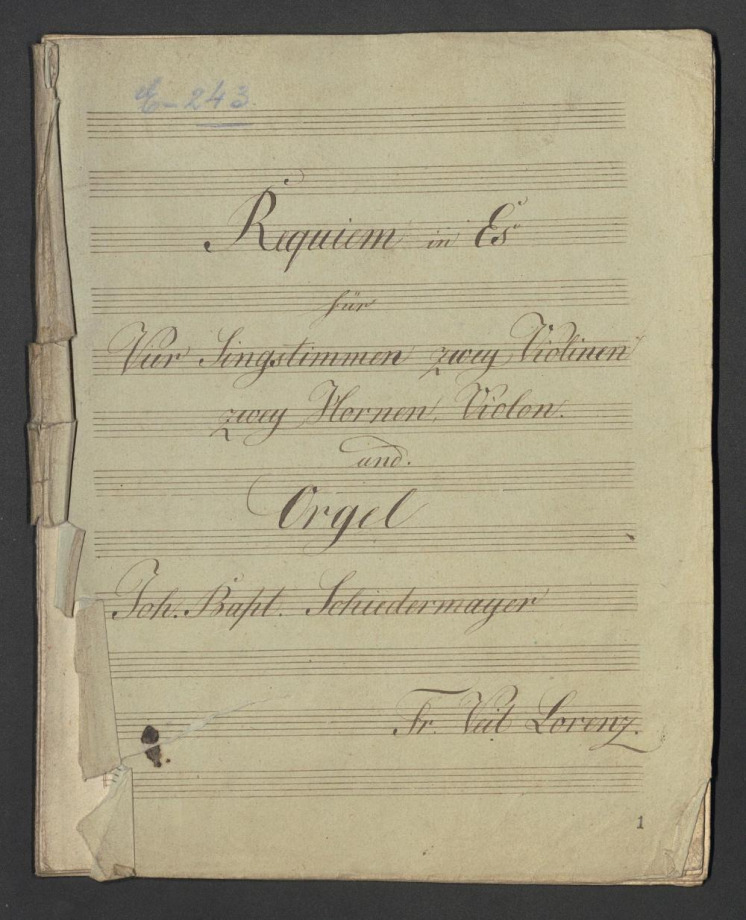 E-243.
Requiem in Es
für
Vier Singstimmen zwey Violinen
zwey Hornen, Violon.
und.
Orgel
Joh. Bapt. Schiedermayer
Fr. Veit Lorenz.
1